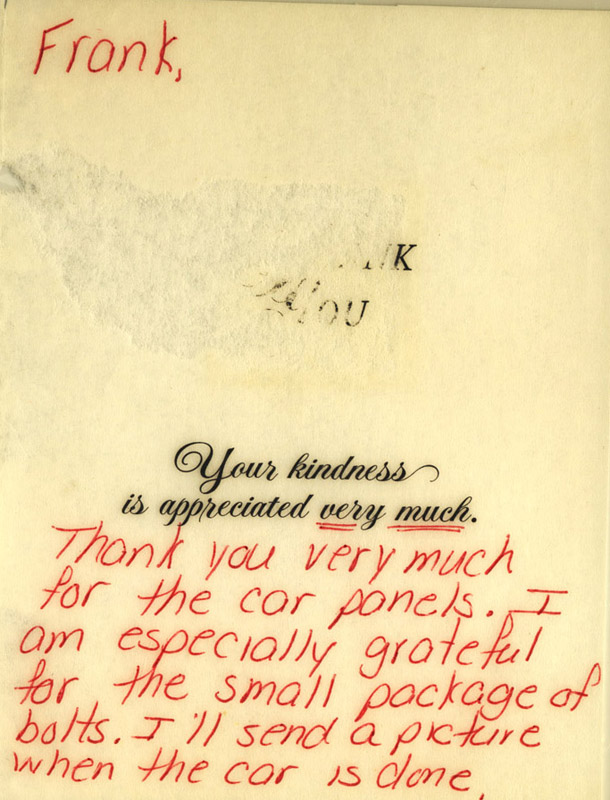 Frank,
YOU
Your kindness
is appreciated very much.
Thank you very much
for the car panels. I
am especially grateful
for the small package of
bolts. I'll send a picture
when the car is done.